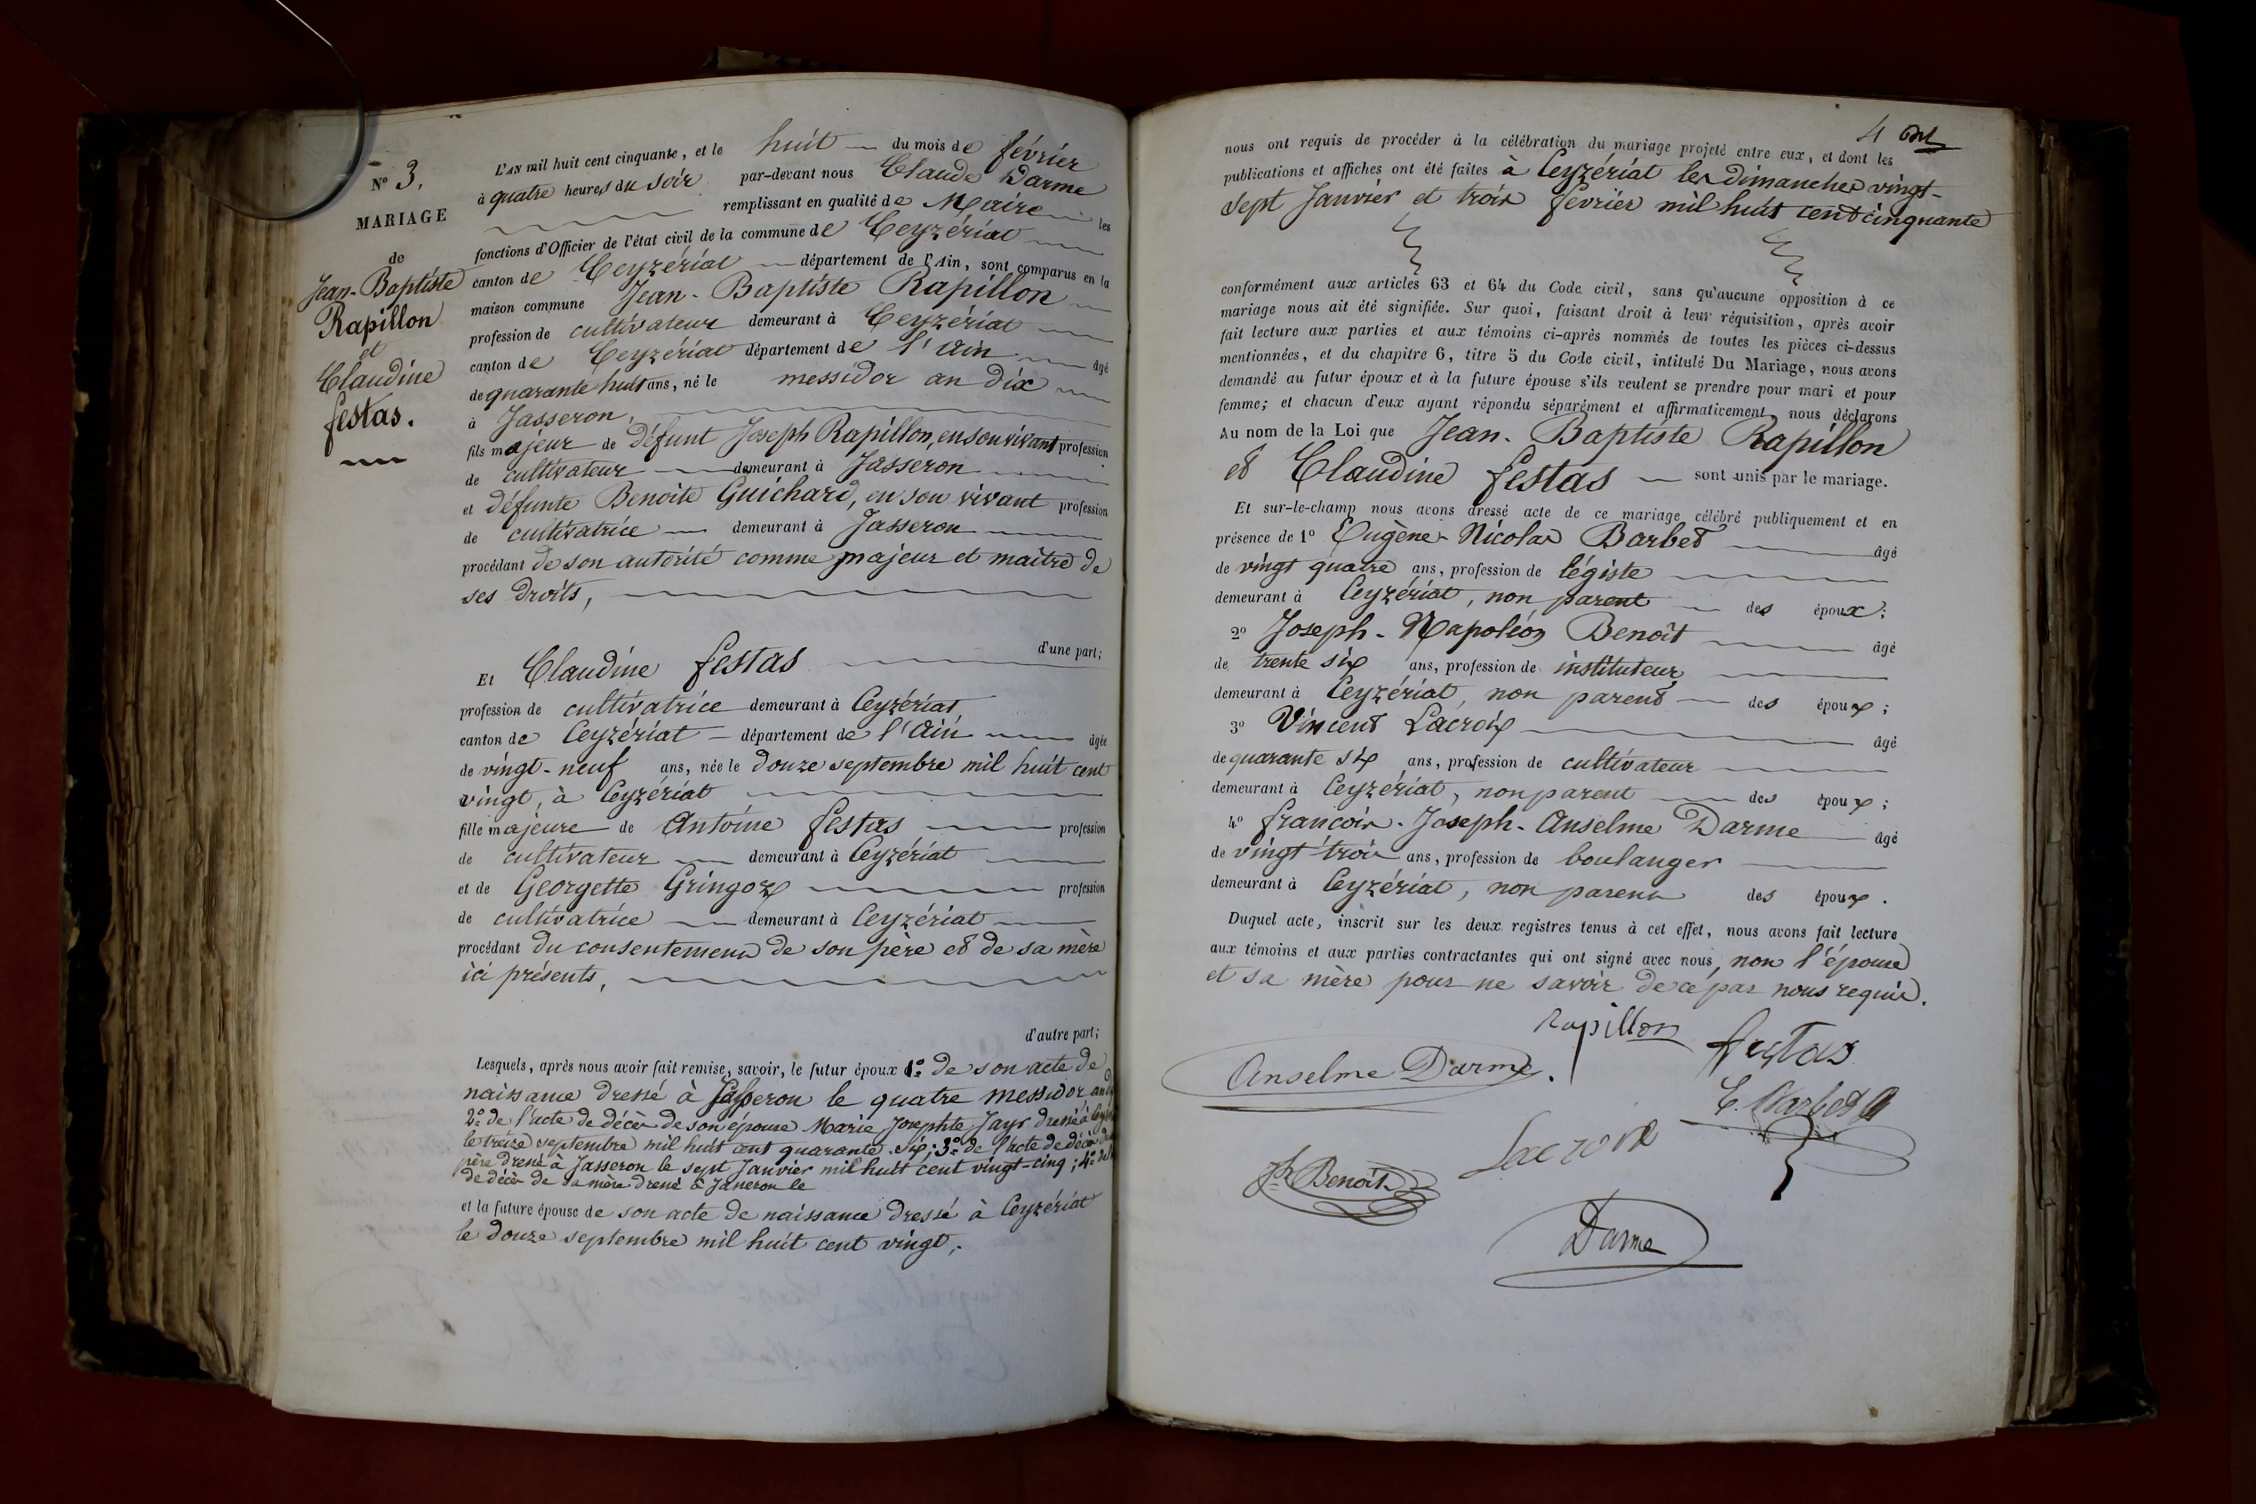 N° 3.
MARIAGE
de
Jean-Baptiste
Rapillon
et
Claudine
festas.
L'AN mil huit cent cinquante, et le huit du mois de février
à quatre heures du soir par-devant nous Claude Darme
remplissant en qualité de Maire les
fonctions d'Officier de l'état civil de la commune de Ceyzériat
canton de Ceyzériat département de l'Ain, sont comparus en la
maison commune Jean-Baptiste Rapillon
profession de cultivateur demeurant à Ceyzériat
canton de Ceyzériat département de l'ain âgé
de quarante huit ans, né le messidor an dix
à Jasseron,
fils majeur de défunt Joseph Rapillon, en son vivant profession
de cultivateur demeurant à Jasseron
et défunte Benoite Guichard, en son vivant profession
de cultivatrice demeurant à Jasseron
procédant de son autorité comme majeur et maître de
ses droits,
d'une part;
Et Claudine festas
profession de cultivatrice demeurant à Ceyzériat
canton de Ceyzériat département de l'ain âgée
de vingt-neuf ans, née le douze septembre mil huit cent
vingt, à Ceyzériat
fille majeure de Antoine festas profession
de cultivateur demeurant à Ceyzériat
et de Georgette Gringoz profession
de cultivatrice demeurant à Ceyzériat
procédant du consentement de son père et de sa mère
ici présents,
d'autre part;
Lesquels, après nous avoir fait remise, savoir, le futur époux 1° de son acte de
naissance dressé à Jasseron le quatre messidor an
2° de l'acte de décès de son épouse Marie Josephte Jayr dressé à
le treize septembre mil huit cent quarante-six; 3° de l'acte de décès de
père dressé à Jasseron le sept Janvier mil huit cent vingt-cinq; 4° de
de décès de sa mère dressé à Jasseron le
et la future épouse de son acte de naissance dressé à Ceyzériat
le douze septembre mil huit cent vingt,
4
nous ont requis de procéder à la célébration du mariage projeté entre eux, et dont les
publications et affiches ont été faites à Ceyzériat les dimanches vingt-
sept Janvier et trois février mil huit cent cinquante
conformément aux articles 63 et 64 du Code civil, sans qu'aucune opposition à ce
mariage nous ait été signifiée. Sur quoi, faisant droit à leur réquisition, après avoir
fait lecture aux parties et aux témoins ci-après nommés de toutes les pièces ci-dessus
mentionnées, et du chapitre 6, titre 5 du Code civil, intitulé Du Mariage, nous avons
demandé au futur époux et à la future épouse s'ils veulent se prendre pour mari et pour
femme; et chacun d'eux ayant répondu séparément et affirmativement, nous déclarons
Au nom de la Loi que Jean-Baptiste Rapillon
et Claudine festas sont unis par le mariage.
Et sur-le-champ nous avons dressé acte de ce mariage célébré publiquement et en
présence de 1° Eugène-Nicolas Barbet âgé
de vingt quatre ans, profession de légiste
demeurant à Ceyzériat, non parent des époux;
2° Joseph-Napoléon Benoît âgé
de trente six ans, profession de instituteur
demeurant à Ceyzériat, non parent des époux;
3° Vincent Lacroix âgé
de quarante six ans, profession de cultivateur
demeurant à Ceyzériat, non parent des époux;
4° francois-Joseph-Anselme Darme âgé
de vingt trois ans, profession de boulanger
demeurant à Ceyzériat, non parent des époux.
Duquel acte, inscrit sur les deux registres tenus à cet effet, nous avons fait lecture
aux témoins et aux parties contractantes qui ont signé avec nous, non l'épouse
et sa mère pour ne savoir de ce par nous requis.
Rapillon
festas
Anselme Darme.
E. Barbet
Lacroix
Jh Benoît
Darme